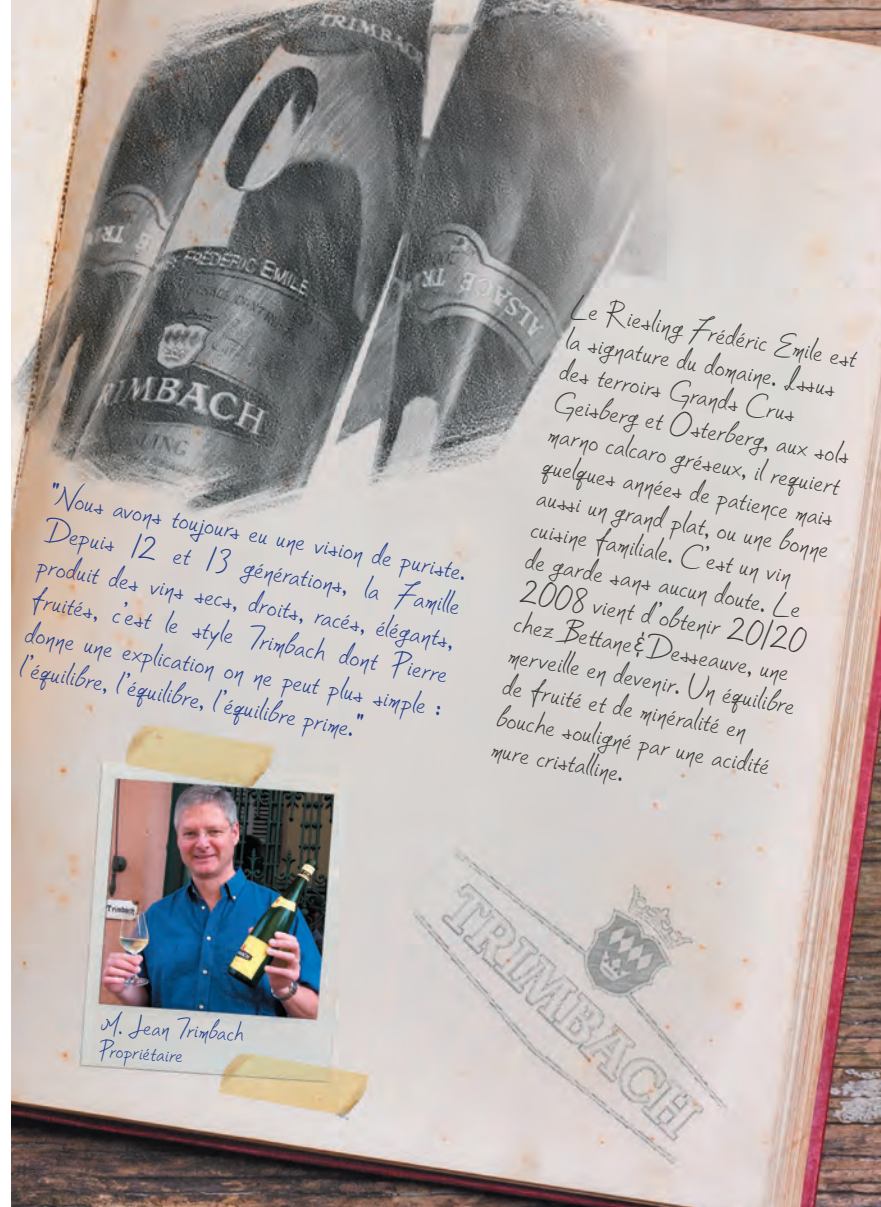 TRIMBACH
FREDERIC EMILE
TRIMBACH
ALSACE
"Nous avons toujours eu une vision de puriste.
Depuis 12 et 13 générations, la Famille
produit des vins secs, droits, racés, élégants,
fruités, c'est le style Trimbach dont Pierre
donne une explication on ne peut plus simple :
l'équilibre, l'équilibre, l'équilibre prime."
Le Riesling Frédéric Emile est
la signature du domaine. Issus
des terroirs Grands Crus
Geisberg et Osterberg, aux sols
marno calcaro gréseux, il requiert
quelques années de patience mais
aussi un grand plat, ou une bonne
cuisine familiale. C'est un vin
de garde sans aucun doute. Le
2008 vient d'obtenir 20/20
chez Bettane&Desseauve, une
merveille en devenir. Un équilibre
de fruité et de minéralité en
bouche souligné par une acidité
mure cristalline.
Trimbach
M. Jean Trimbach
Propriétaire
TRIMBACH